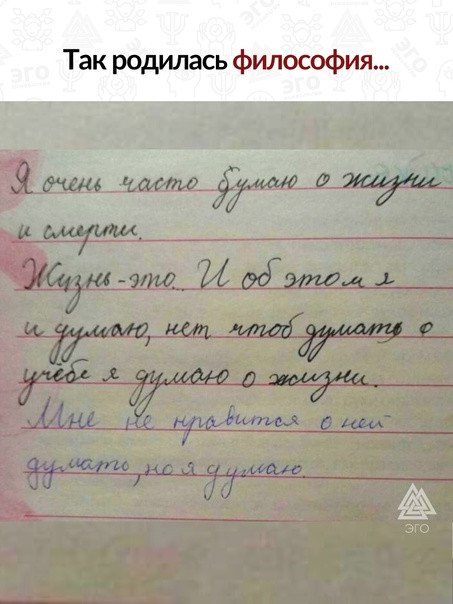 Так родилась философия...
Я очень часто думаю о жизни
и смерти.
Жузнь-это... И об этом я
и думаю, нет чтоб думать о
учёбе я думаю о жизни.
Мне не нравится о ней
думать, но я думаю.
ЭГО